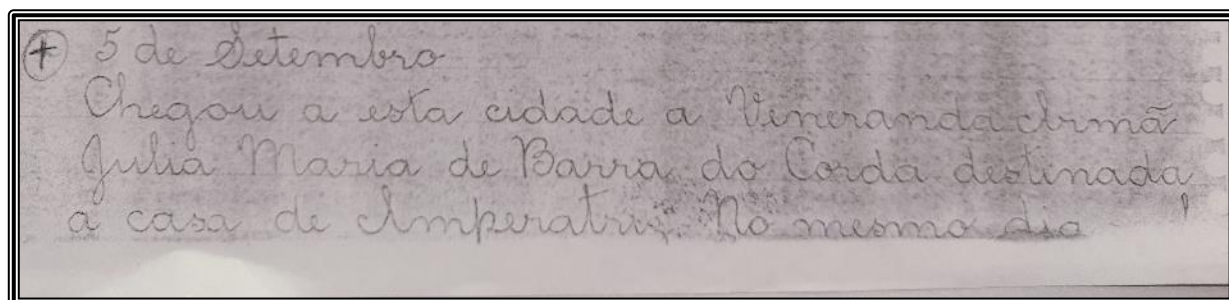 + 5 de Setembro
Chegou a esta cidade a Veneranda Irmã
Julia Maria de Barra do Corda destinada
a casa de Imperatriz. No mesmo dia